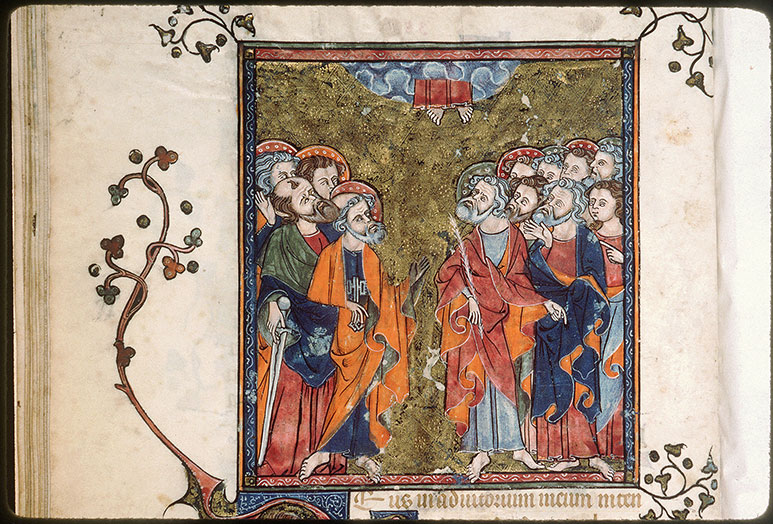 Eus in adiutorium meum inten